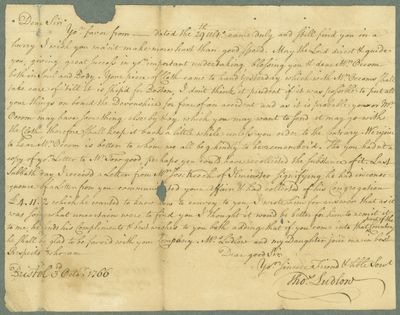 Dear Sir
Yor. favor from — dated the 29th Ulto. came duly and still find you in a
hurry I wish you mayn't make more hast than good speed. May the Lord direct & guide
you, giving great success in yr. important undertaking blessing you & dear Mr. Occom
both in Soul and Body. Your piece of Cloth came to hand yesterday which with Mr. Occoms shall
take care of till it is ship'd for Boston, I don't think it prudent if it was possible to put all
your things on board the Devonshire for fear of an accident and as it is probable you or Mr.
Occom may have some thing else by & by which you may want to send it may go with
the Cloth therefore shall keep it back a little while unless you order to the contrary. We rejoice
to hear Mr. Occom is better to whom we all beg kindly to be remembered. Tho you had not a
copy of yr. Letter to Mr. good perhaps you could have recollected the substance of it. Last
Sabbath day I received a Letter from Mr. of Ilminster signifying he had
by a Letter from you communicated your Affair & had collected of his Congregation
£4.11.2 which he wanted to know how to convey to you, I wrote him for answer that as it
was
to me, he sends his Compliments & best wishes to you both adding that if you come into that part of the Country
he shall be glad to be favor'd with your Company. Mrs. Ludlow and my Daughter join me in best
Respects who am
Dear good Sir
Yor. sincere Friend & hble Servt
Thos. Ludlow
Bristol 3d Octr. 1766